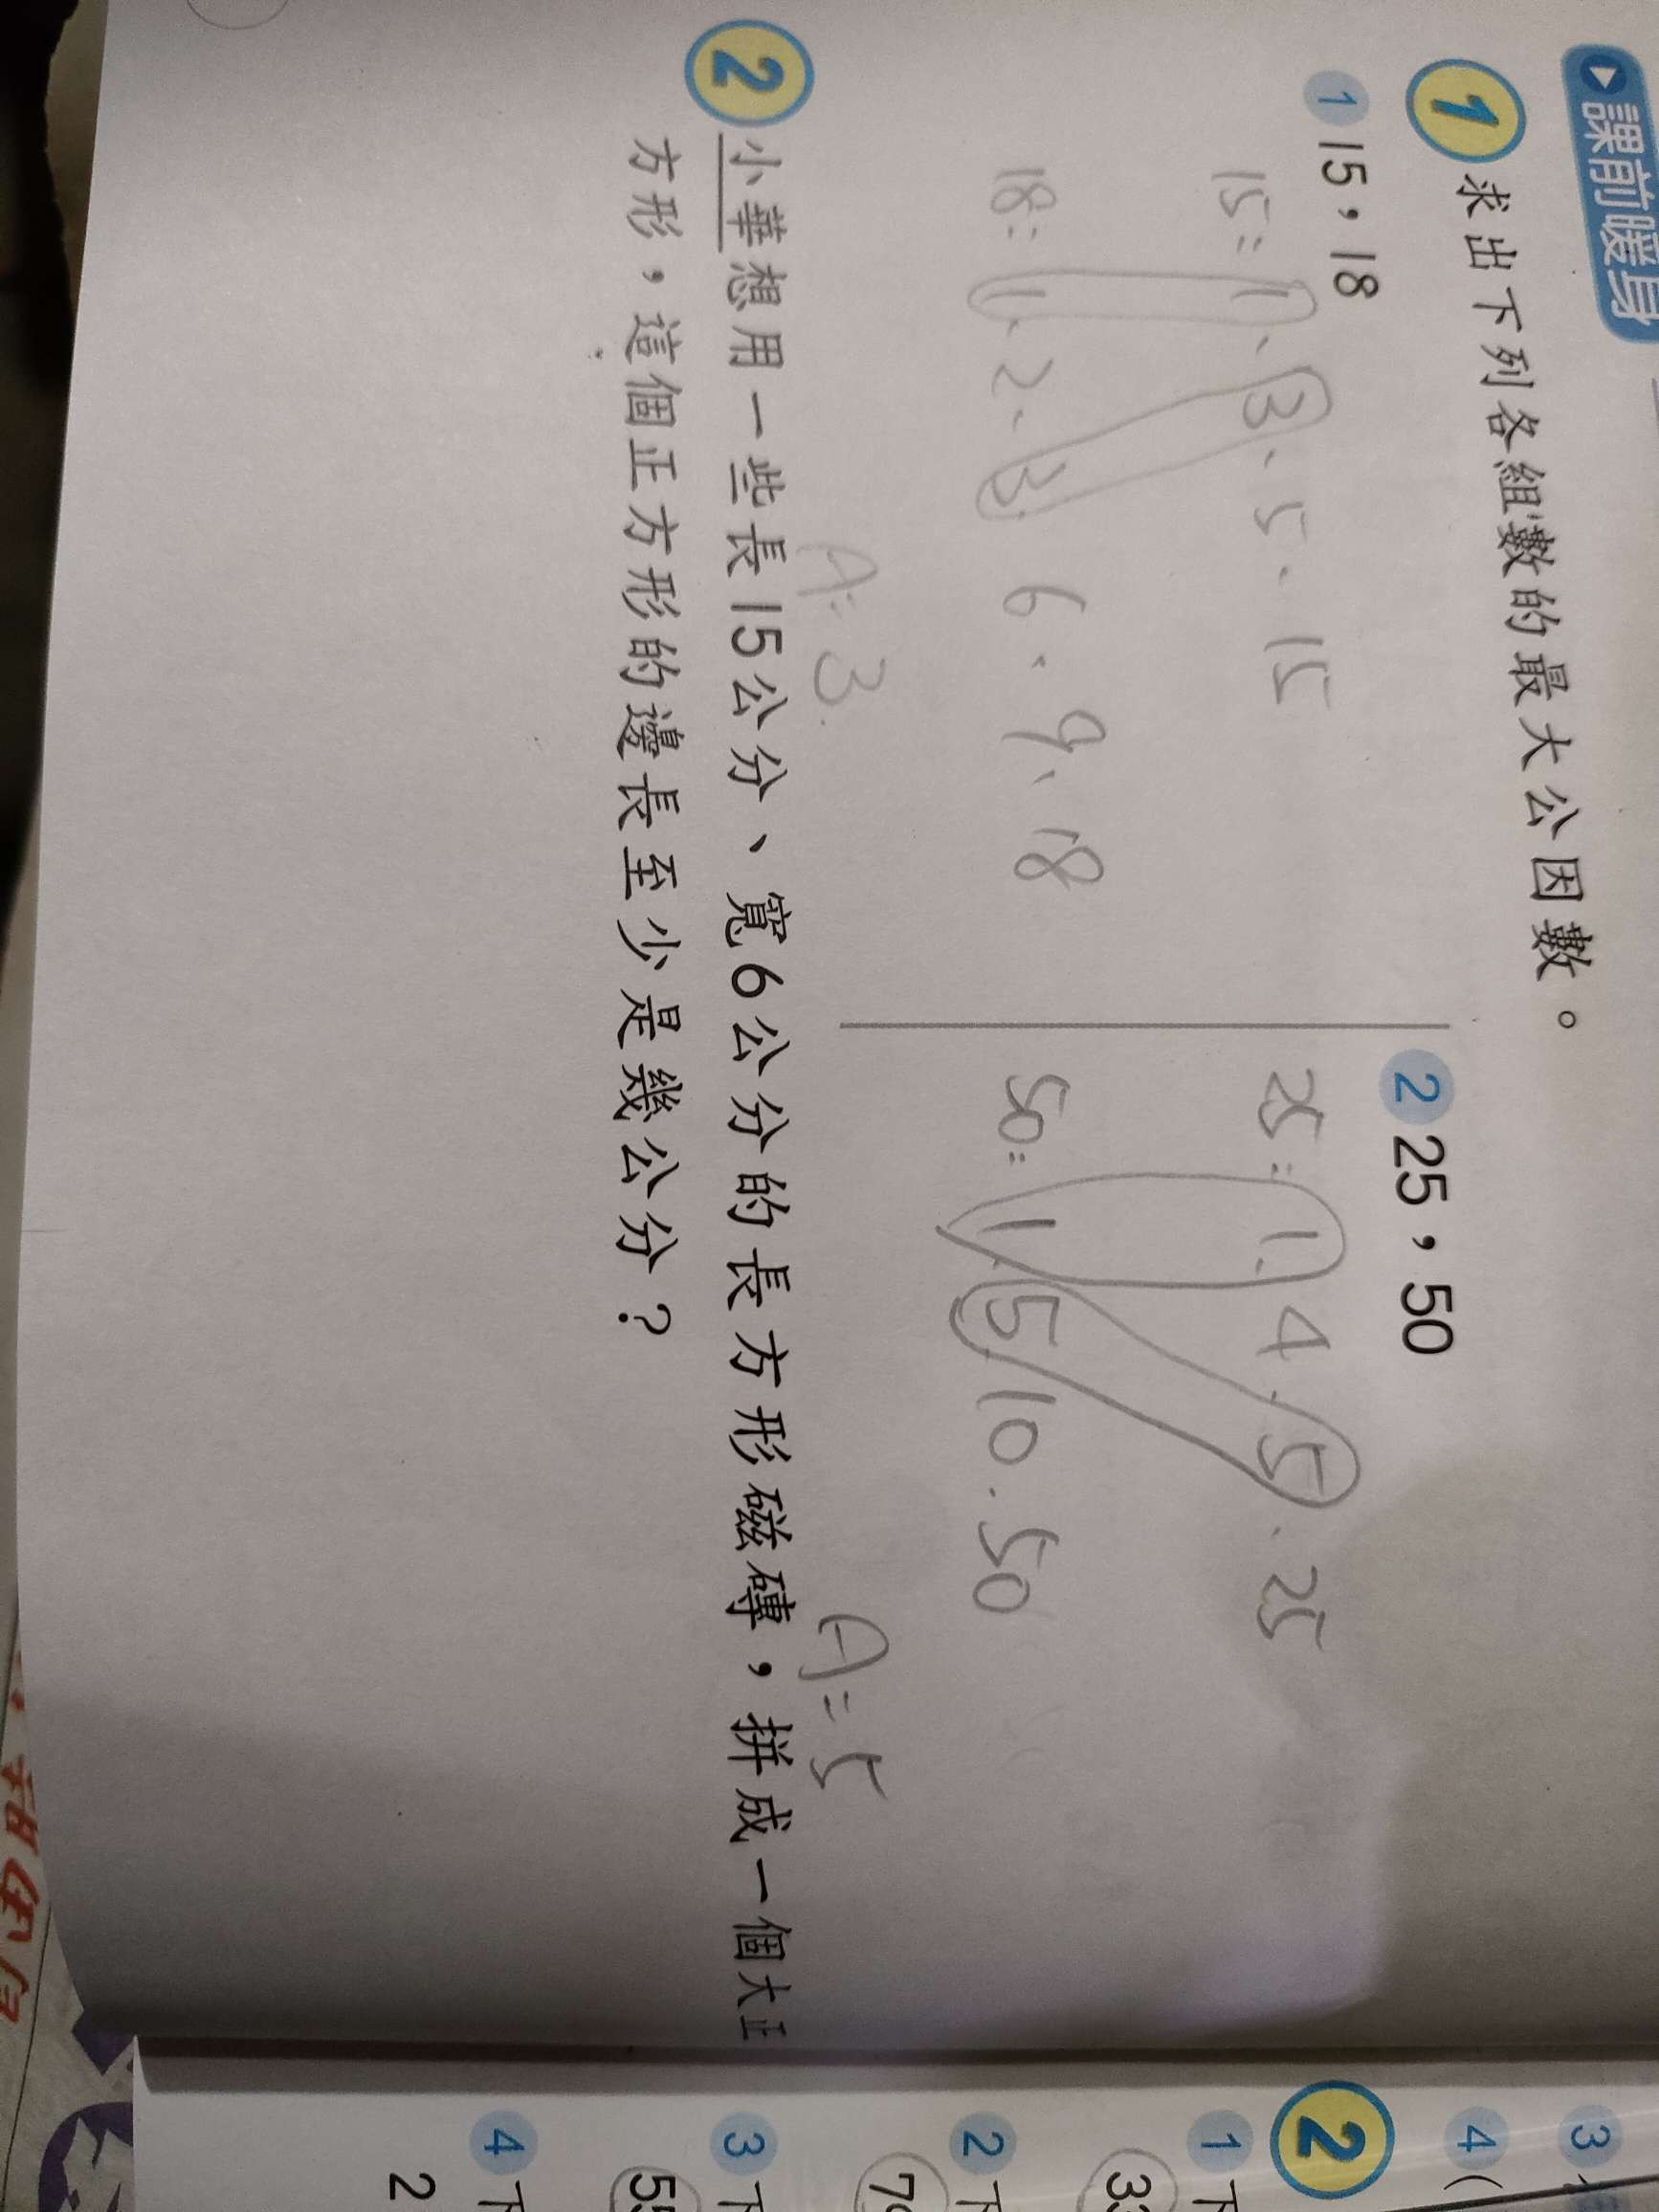 課前暖身
1 求出下列各組數的最大公因數。
1 15，18
15：1、3、5、15
18：1、2、3、6、9、18
A：3
2 25，50
25：1、4、5、25
50：1、5、10、50
A=5
2 小華想用一些長15公分、寬6公分的長方形磁磚，拼成一個大正
方形，這個正方形的邊長至少是幾公分？
3
4（
2
1 下
2 下
3 下
4 下
2